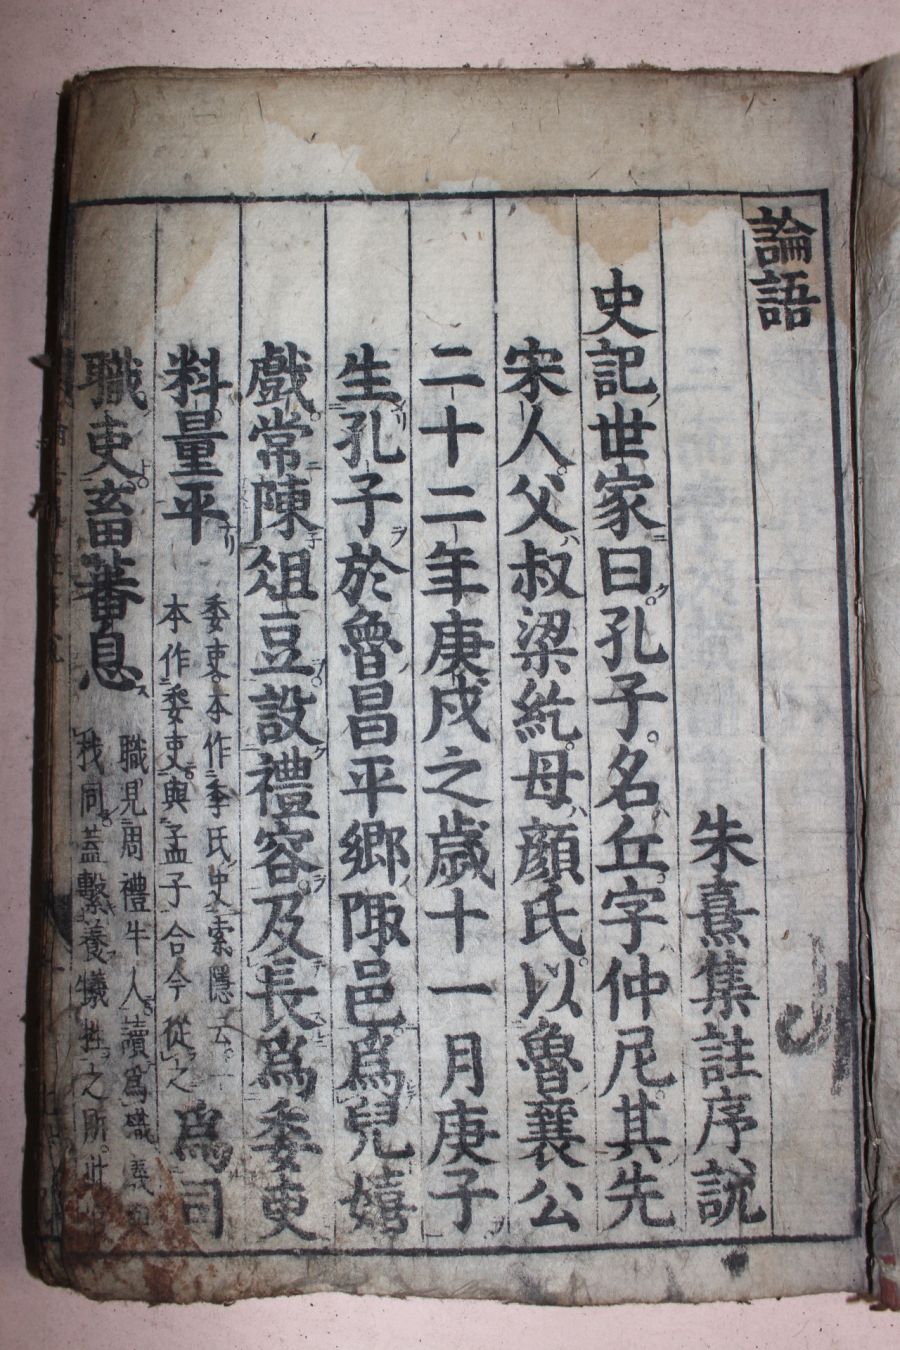 論語
朱熹集註序說
史記世家曰孔子名丘字仲尼其先
宋人父叔梁紇母顏氏以魯襄公
二十二年庚戌之歲十一月庚子
生孔子於魯昌平鄉陬邑爲兒嬉
戲常陳俎豆設禮容及長爲委吏
料量平
委吏本作季氏史索隱云一
本作委吏與孟子合今從之
爲司
職吏畜蕃息
職見周禮牛人讀爲樴義與
杙同蓋繫養犧牲之所